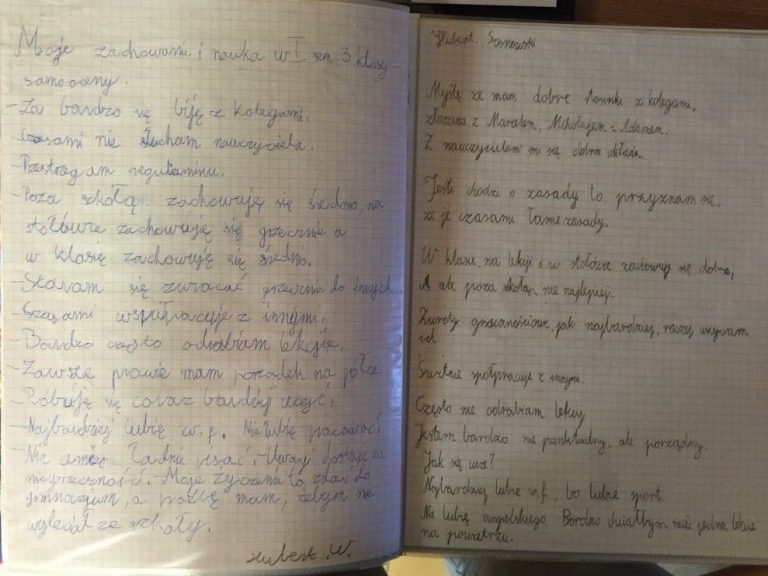 Moje zachowani i nauka w I sem 3 klasy -
samooceny.
- Za bardzo się biję z kolegami.
- Czasami nie słucham nauczyciela.
- Przestrzegam regulaminu.
- Poza szkołąm zachowuję się średnio, na
stołówce zachowuję się grzecznie a
w klasię zachowuję się średnio.
- Staram się zwracać grzecznie do innych
- Czasami współpracuje z innymi.
- Bardzo często odrabiam lekcjie.
- Zawsze prawie mam porządek na półce.
- Próbuję się coraz bardziej uczyć.
- Najbardziej lubię w.f. Nie lubię pracować.
- Nie umiem ładnie pisać. - Uwagi dostaję za
niegrzeczność. - Moje życzenie to, zdać do
gimnazjum, a prośbę mam, żebym nie
wyleciał ze szkoły.
Hubert .W.
Hubert. Sarnowski
Myślę że mam dobre stosunki z kolegami,
złaszcza z Marcelem, Mikołajem i Adamem.
Z nauczycielami mi się dobrze układa.
Jeśli chodzi o zasady to przyznam się,
że je czasami łamie zasady.
W klasie na lekcji i w stołówce zachowuję się dobrze,
A ale poza szkołą nie najlepiej.
Zwroty grzecznościowe, jak najbardziej, raczej używam
ich.
Świetnie współpracuje z innymi.
Często nie odrabiam lekcji
Jestem bardzo nie punktualny, ale porządny.
Jak się uczę?
Najbardziej lubie w.f., bo lubie sport.
Nie lubię angielskiego. Bardzo chciałbym mieć jedną lekcie
na powietrzu.